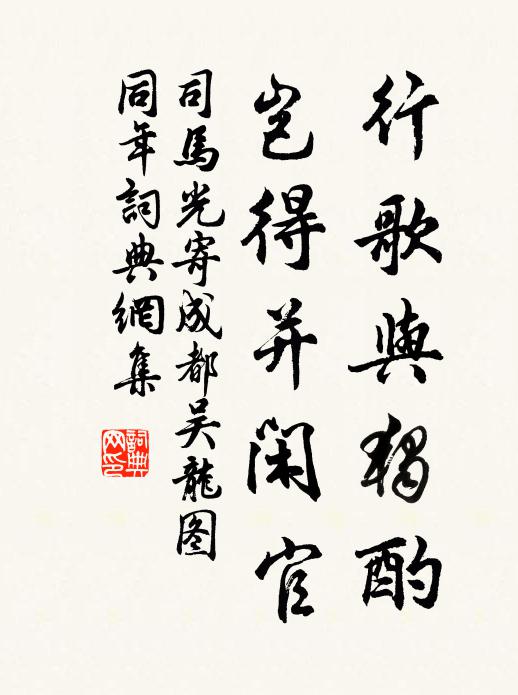 行歌與獨酌
豈得并閑官
司馬光寄成都吴龍图
同年詞典網集
詞典
网印